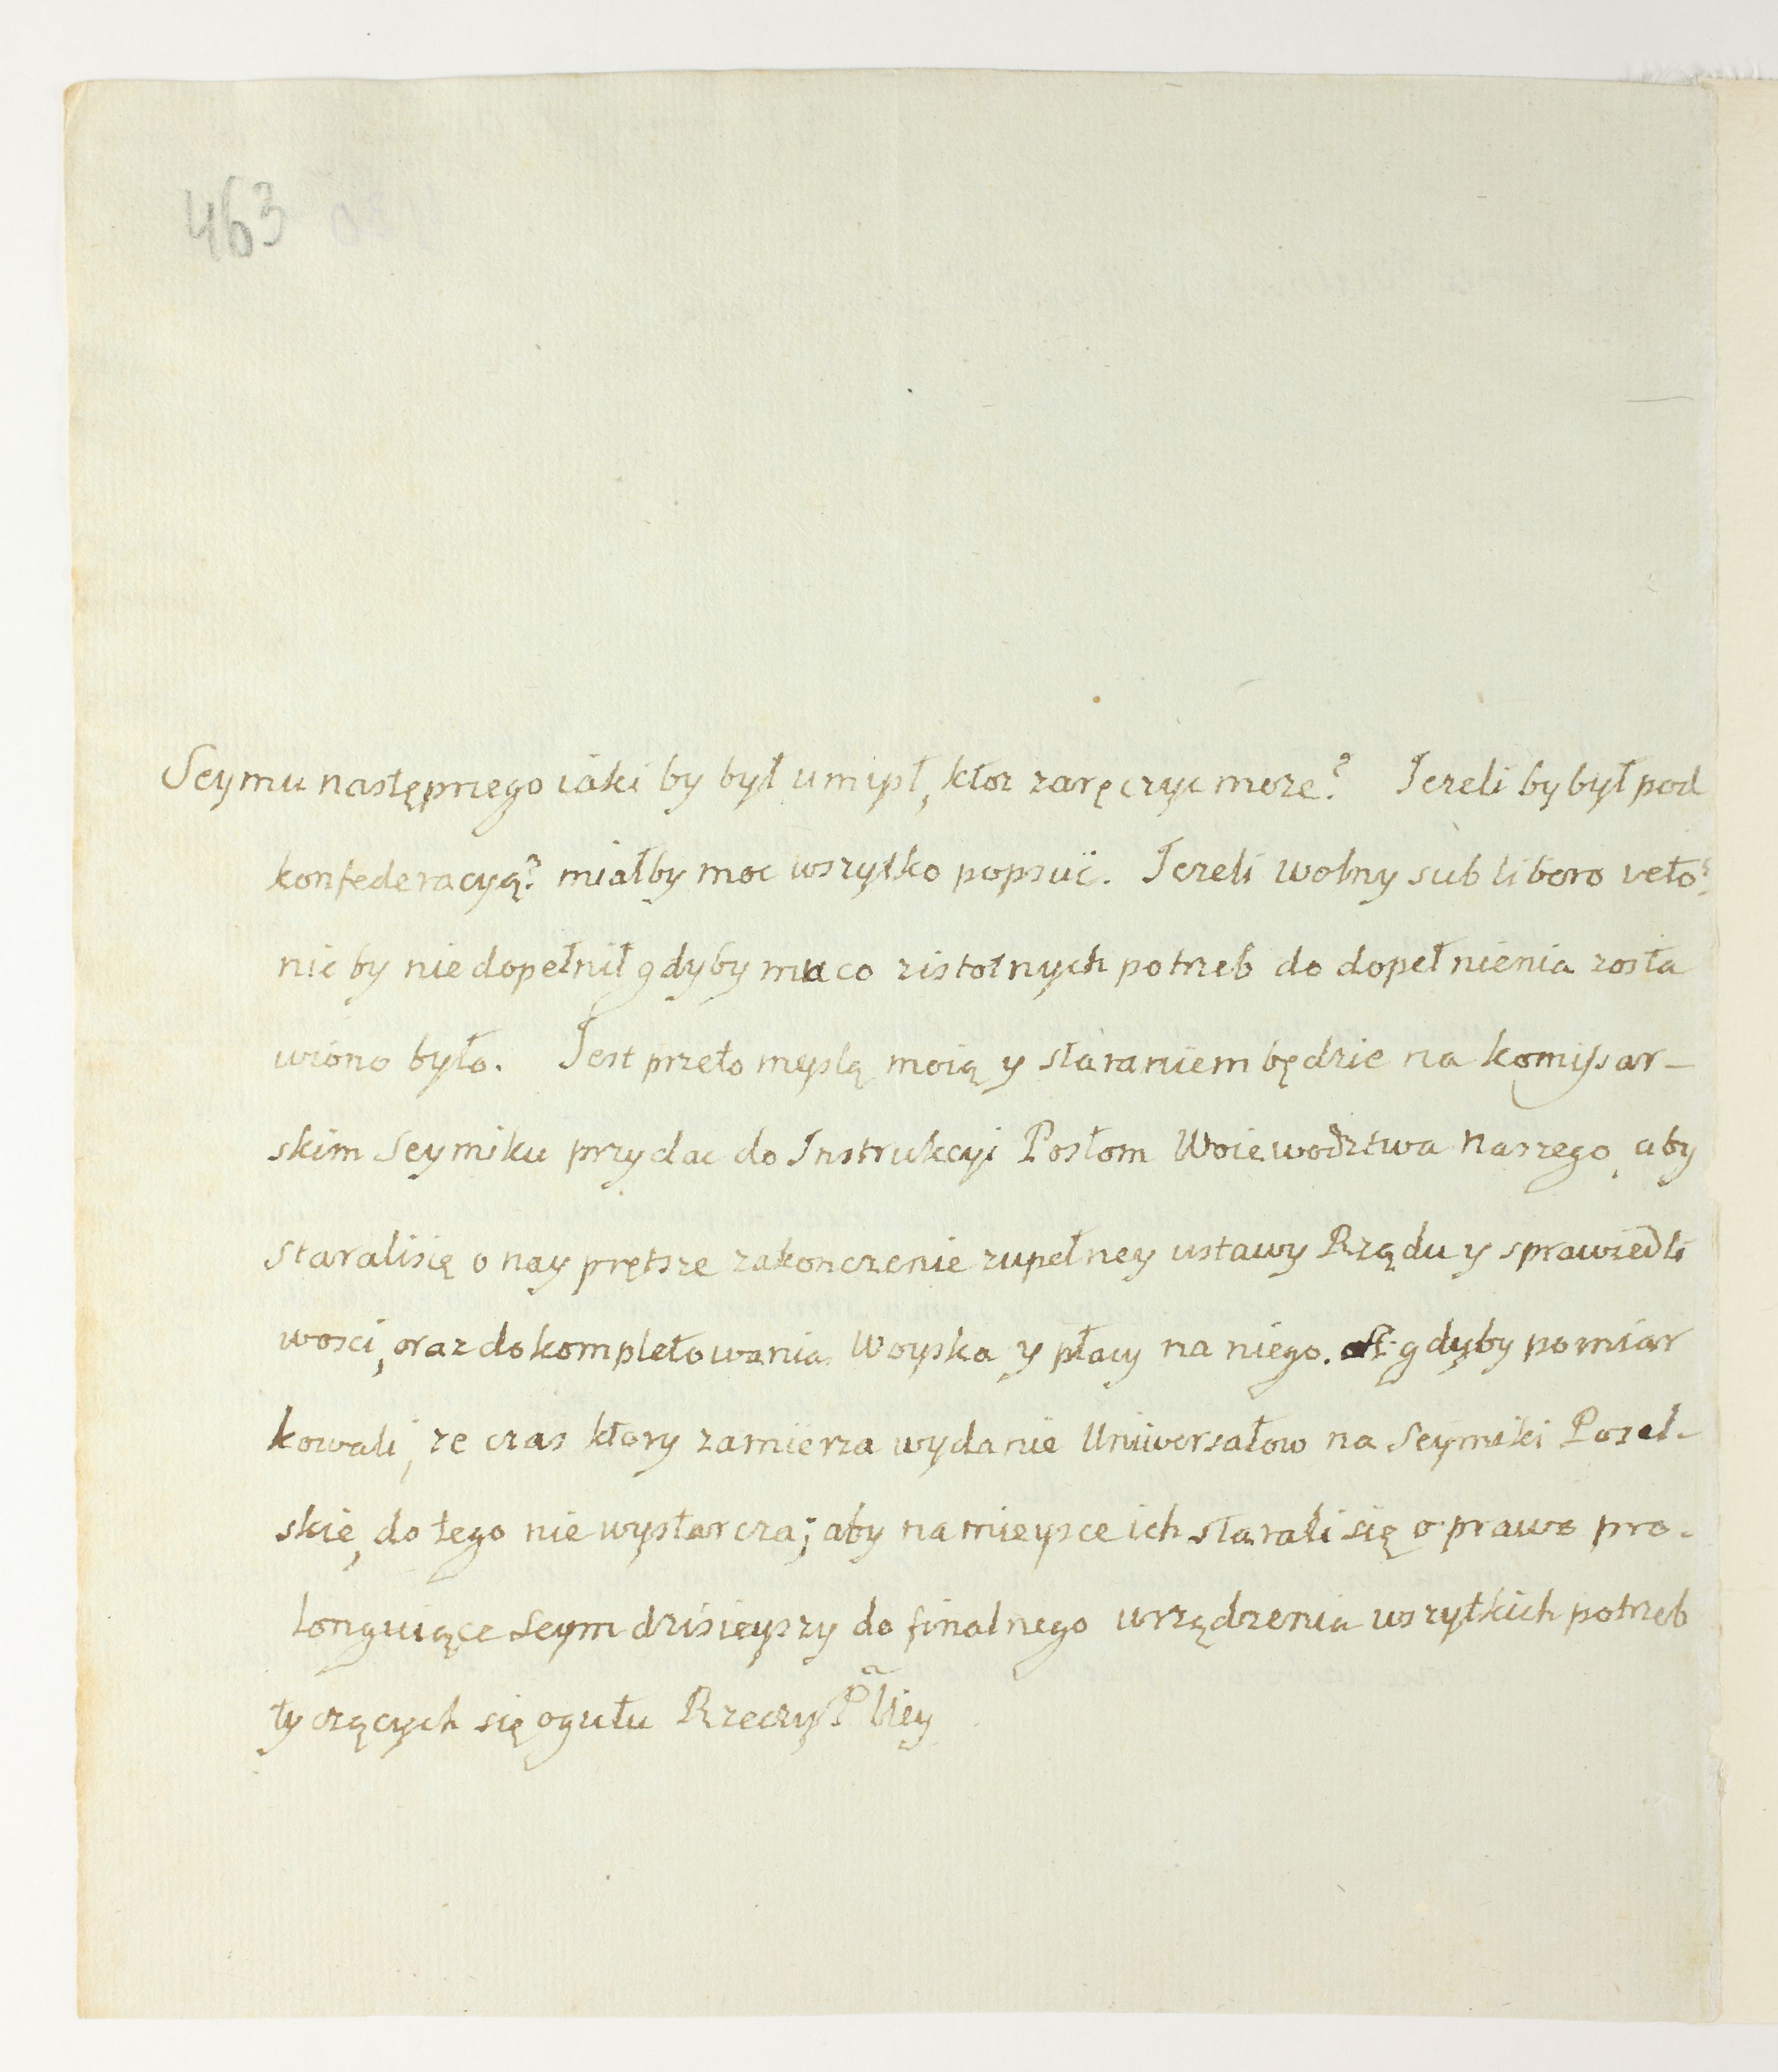 463
Seymu następnego iaki by był umysł, ktoz zaręczyc moze? Jezeli by był pod
konfederacyą? miałby moc wszytko popsuć. Jezeli wolny sub libero veto?
nic by nie dopełnił gdyby mu co zistotnych potrzeb do dopełnienia zosta
wiono było. Jest przeto myslą moią y staraniem będzie na komissar-
skim Seymiku przydac do Instrukcyi Posłom Woiewodztwa naszego, aby
starali się o nay prętsze zakonczenie zupełney ustawy Rządu y sprawiedli
wosci, oraz dokompletowania Woyska y płacy na niego. A gdyby pomiar
kowali, ze czas ktory zamierza wydanie Uniwersałow na Seymiki Posel-
skie, do tego nie wystarcza; aby na mieysce ich starali się o prawo pro-
longuiące Seym dzisieyszy do finalnego urządzenia wszytkich potrzeb
tyczących się ogułu Rzeczy Pliey